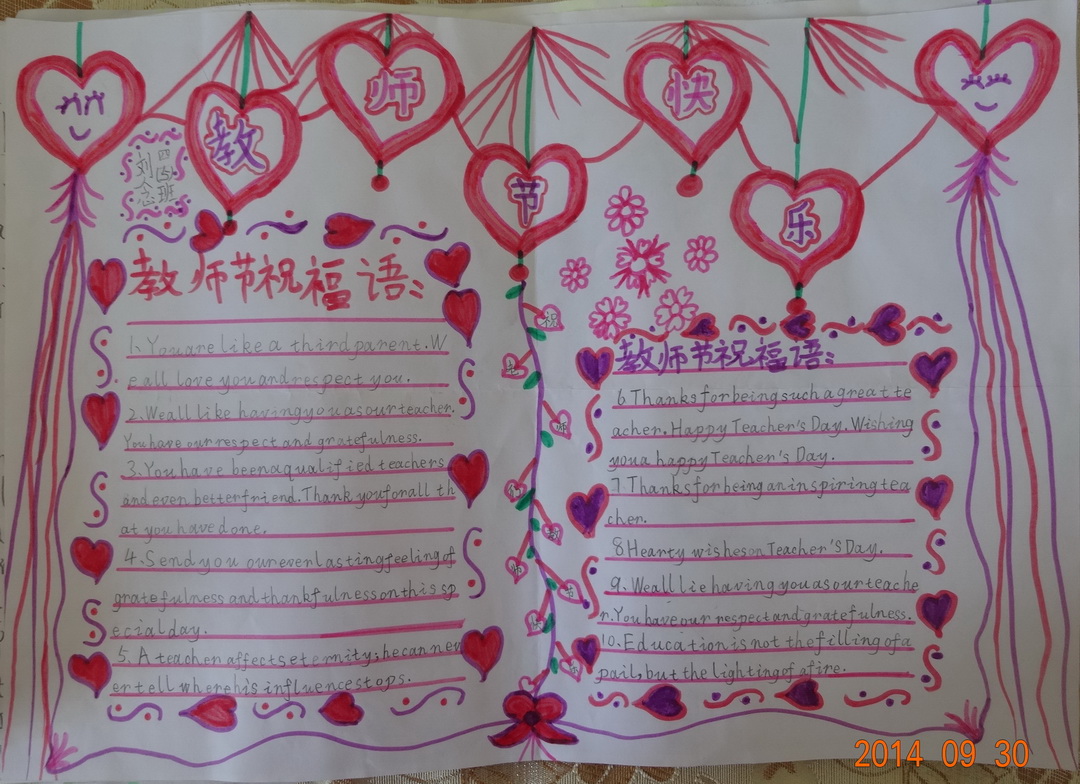 教师节快乐
四(5)班
刘念
教师节祝福语:
1.You are like a third parent. W
e all love you and respect you.
2.We all like having you as our teacher.
You have our respect and gratefulness.
3.You have been a qualified teachers
and even better friend. Thank you for all th
at you have done.
4.Send you our everlasting feeling of
gratefulness and thankfulness on this sp
ecial day.
5. A teacher affects eternity; he can nev
er tell where his influence stops.
教师节祝福语:
6 Thanks for being such a great te
acher. Happy Teacher's Day. Wishing
you a happy Teacher's Day.
7 Thanks for being an inspiring tea
cher.
8.Hearty wishes on Teacher'S Day.
9. We all lie having you as our teache
r. You have our respect and gratefulness.
10. Education is not the filling of a
pail, but the lighting of a fire.
祝
老
师
们
教
师
节
快
2014 09 30